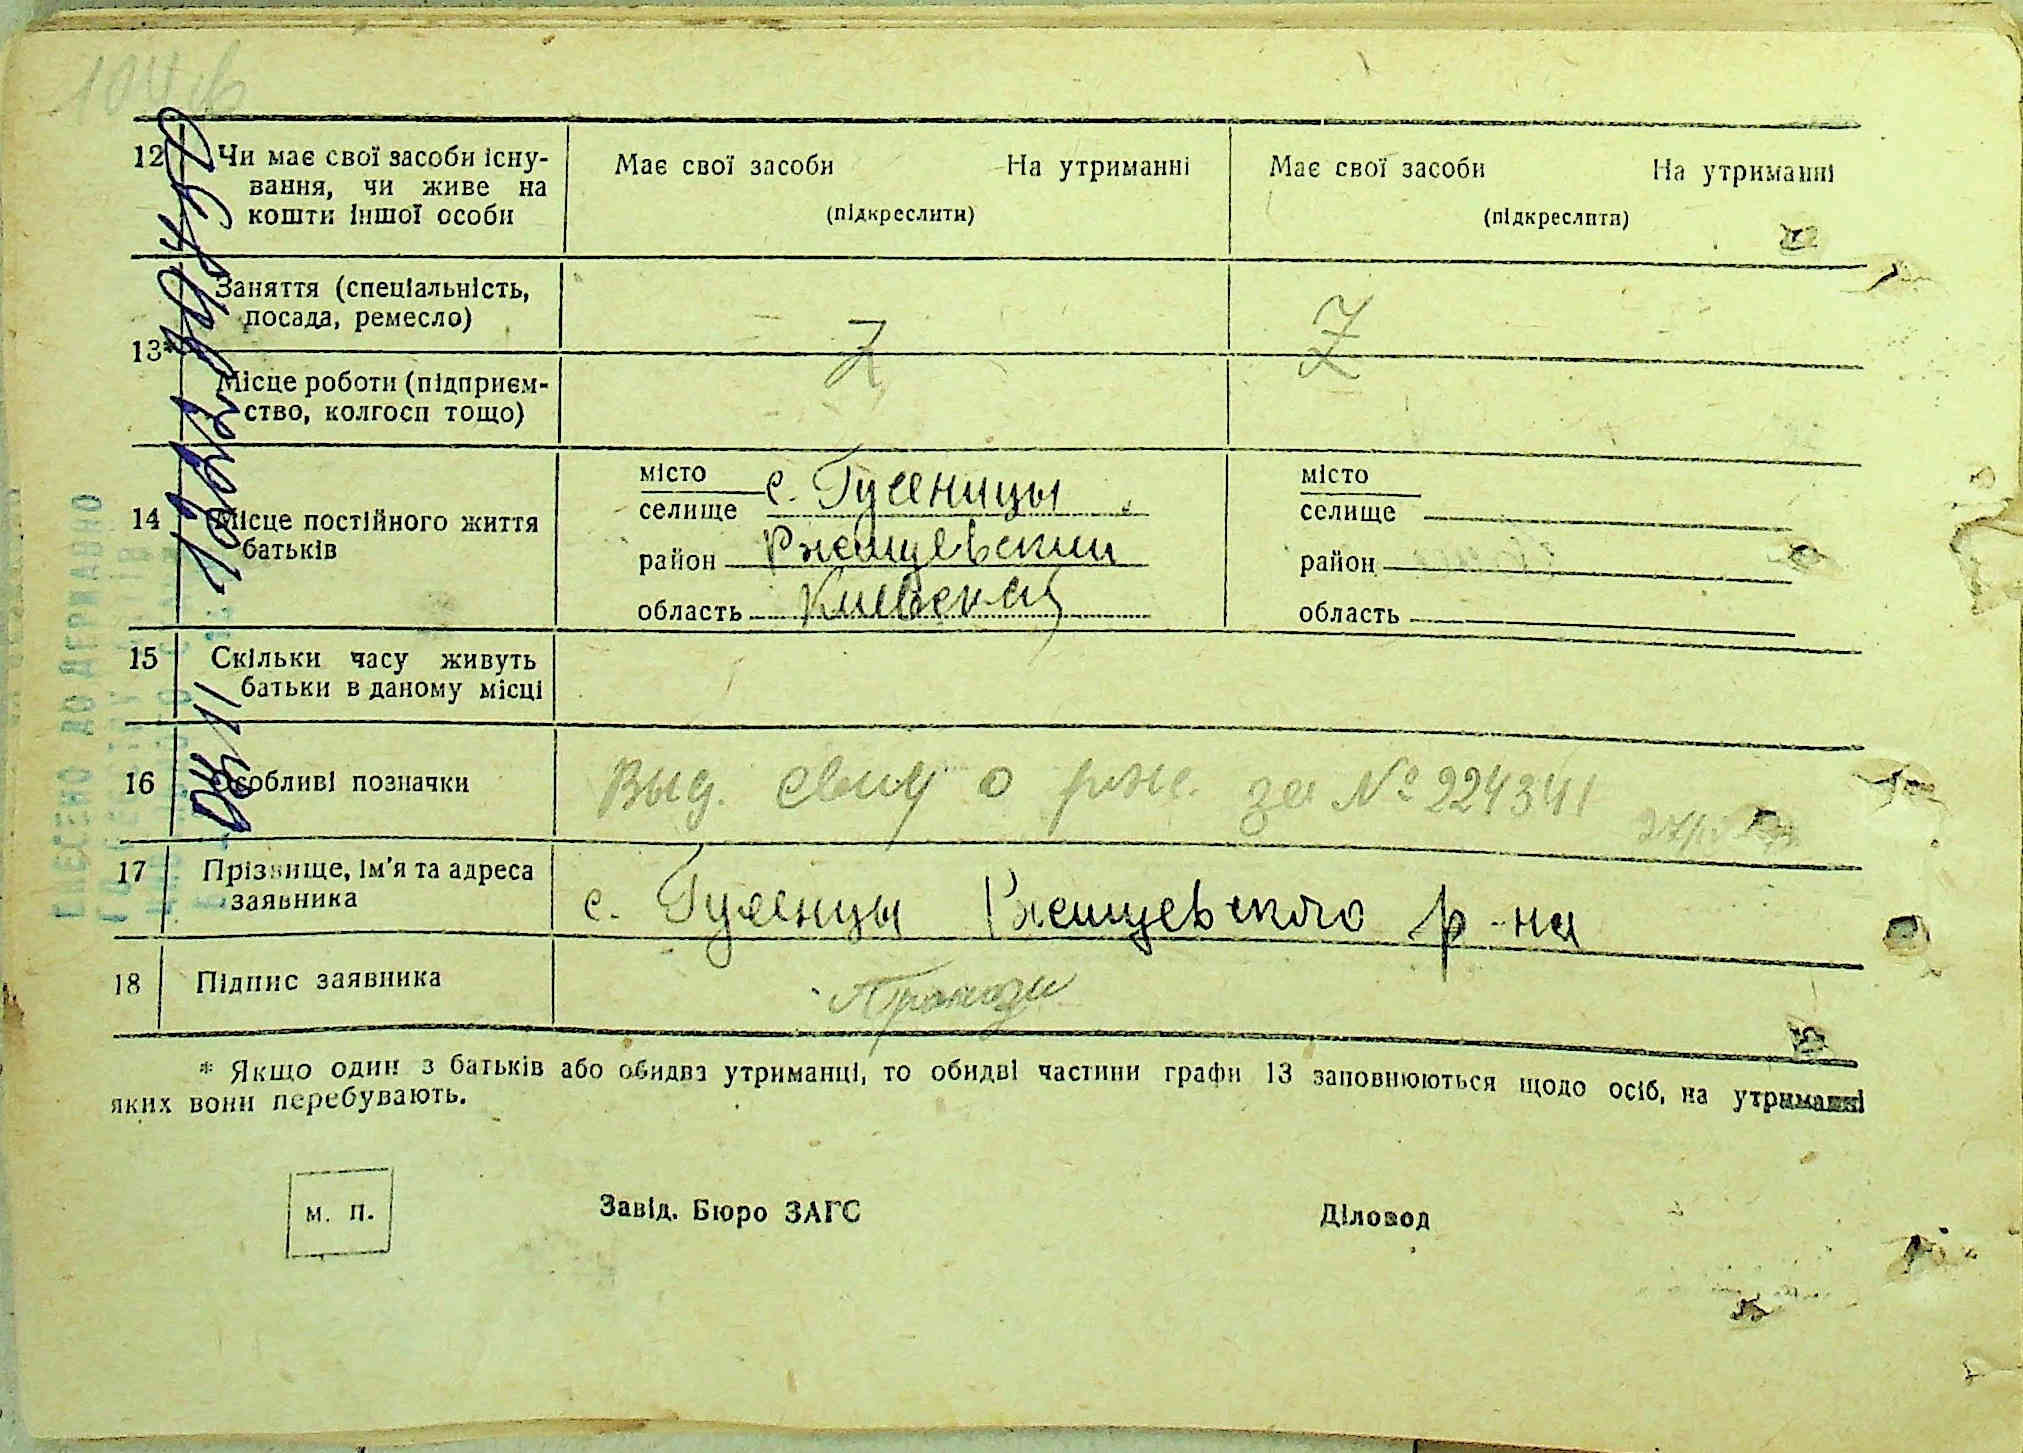 12 Чи має свої засоби існу-
вання, чи живе на
кошти іншої особи
Має свої засоби На утриманні
(підкреслити)
Має свої засоби На утриманні
(підкреслити)
13*
Заняття (спеціальність,
посада, ремесло)
Z Z
Місце роботи (підприєм-
ство, колгосп тощо)
14 Місце постійного життя
батьків
місто
селище с. Гусеницы
район Ржищевский
область Киевская
місто
селище
район
область
15 Скільки часу живуть
батьки в даному місці
16 Особливі позначки
Выд. свид о рож. за № 224341
17 Прізвище, ім'я та адреса
заявника
с. Гусенцы Ржищевского р-на
18 Підпис заявника
* Якщо один з батьків або обидва утриманці, то обидві частини графи 13 заповнюються щодо осіб, на утриманні
яких вони перебувають.
м. п. Завід. Бюро ЗАГС Діловод
ВНЕСЕНО ДО ДЕРЖАВНО